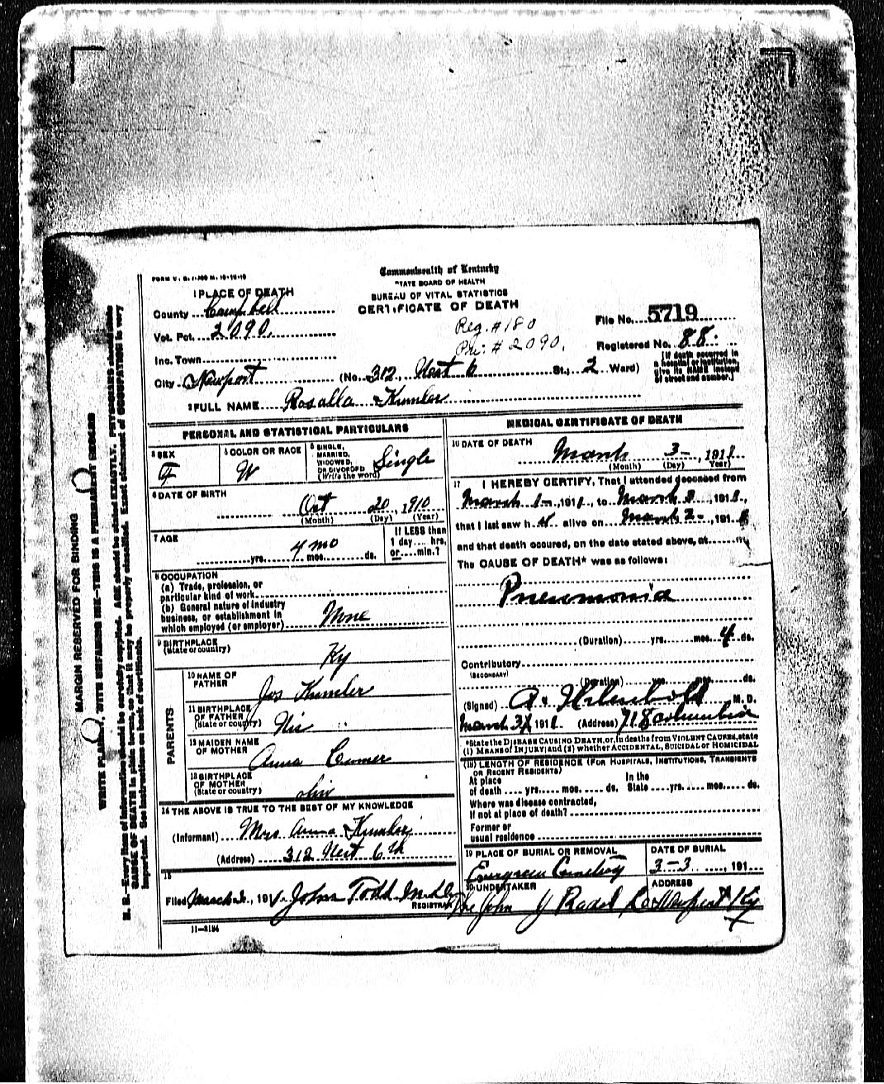 FORM V. S.
Commonwealth of Kentucky
STATE BOARD OF HEALTH
BUREAU OF VITAL STATISTICS
CERTIFICATE OF DEATH
1 PLACE OF DEATH
County Campbell
Vot. Pct. 2090.
Inc. Town
City Newport (No. 312 West 6 St., 2 Ward)
Reg. #180
Pri. # 2090.
File No. 5719
Registered No. 88.
[If death occurred in a hospital or institution, give its NAME instead of street and number.]
2 FULL NAME Rosalla Kumler
PERSONAL AND STATISTICAL PARTICULARS
3 SEX F
4 COLOR OR RACE W
5 SINGLE, MARRIED, WIDOWED, OR DIVORCED (Write the word) Single
6 DATE OF BIRTH
Oct 20, 1910
(Month) (Day) (Year)
7 AGE
yrs. 4 mo mos. ds.
If LESS than 1 day.... hrs. or.....min.?
8 OCCUPATION
(a) Trade, profession, or
particular kind of work
(b) General nature of industry
business, or establishment in
which employed (or employer) None
9 BIRTHPLACE
(State or country) Ky
PARENTS
10 NAME OF FATHER Jos Kumler
11 BIRTHPLACE OF FATHER (State or country)
12 MAIDEN NAME OF MOTHER Anna
13 BIRTHPLACE OF MOTHER (State or country) Ohio
14 THE ABOVE IS TRUE TO THE BEST OF MY KNOWLEDGE
(Informant) Mrs. Anna Kumler
(Address) 312 West 6th
15
Filed March 191 John Todd REGISTRAR
11-3184
MEDICAL CERTIFICATE OF DEATH
16 DATE OF DEATH
March 3-, 1911
(Month) (Day) Year)
17 I HEREBY CERTIFY, That I attended deceased from
March 1-, 1911, to March 191
that I last saw h alive on March 2-, 191
and that death occured, on the date stated above, at m
The CAUSE OF DEATH* was as follows:
Pneumonia
(Duration) yrs. mos. 4 ds.
Contributory
(SECONDARY)
(Duration) yrs. mos. ds.
(Signed) A. M.D.
March 3/ 1911. (Address) 718 Columbia
*State the DISEASE CAUSING DEATH, or, in deaths from VIOLENT CAUSES, state
(1) MEANS OF INJURY; and (2) whether ACCIDENTAL, SUICIDAL or HOMICIDAL
(18) LENGTH OF RESIDENCE (FOR HOSPITALS, INSTITUTIONS, TRANSIENTS
OR RECENT RESIDENTS)
At place of death yrs. mos. ds. In the State yrs. mos. ds.
Where was disease contracted,
If not at place of death?
Former or
usual residence
19 PLACE OF BURIAL OR REMOVAL
Evergreen Cemetery
DATE OF BURIAL
3-3 , 191
20 UNDERTAKER
The John J Radel Co
ADDRESS
Newport Ky
MARGIN RESERVED FOR BINDING
WRITE PLAINLY, WITH UNFADING INK—THIS IS A PERMANENT RECORD
N. B.—Every item of information should be carefully supplied. AGE should be stated EXACTLY. PHYSICIANS should state
CAUSE OF DEATH in plain terms, so that it may be properly classified. Exact statement of OCCUPATION is very
important. See instructions on back of certificate.